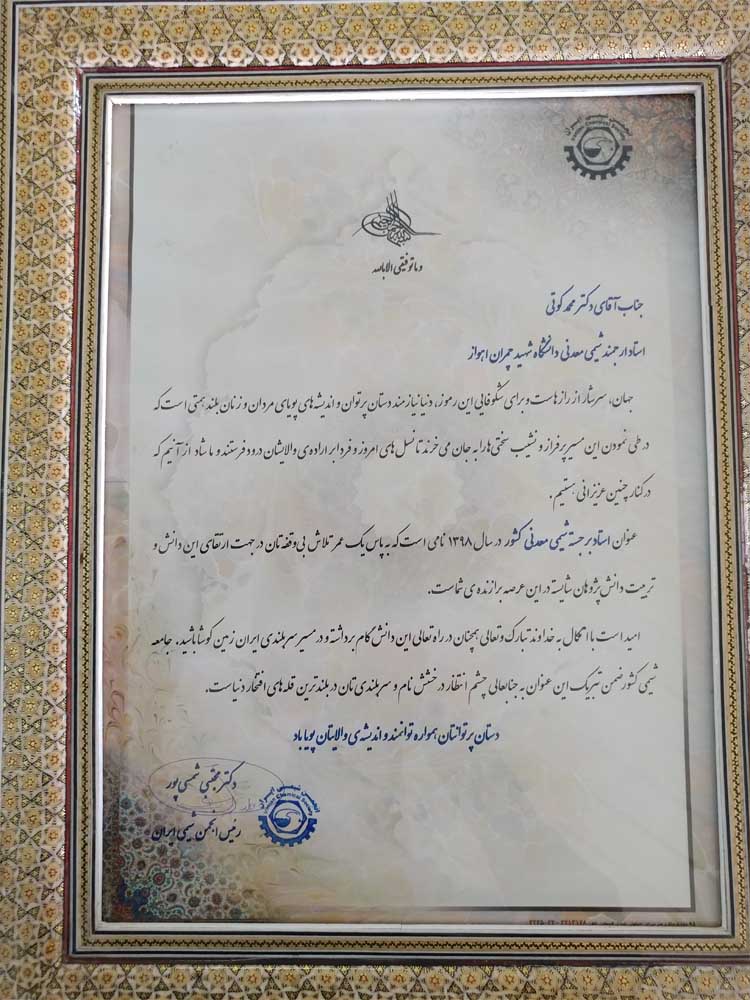 انجمن شیمی ایران
Iranian Chemical Society
و ما توفیقی الا بالله
جناب آقای دکتر محمد کوتی
استاد ارجمند شیمی معدنی دانشگاه شهید چمران اهواز
جهان، سرشار از رازهاست و برای شکوفایی این رموز، دنیا نیازمند دستان پرتوان و اندیشه‌های پویای مردان و زنان بلند همتی است که
در طی نمودن این مسیر پر فراز و نشیب سختی‌ها را به جان می‌خرند تا نسل‌های امروز و فردا بر اراده‌ی والایشان درود فرستند و ما شاد از آنیم که
در کنار چنین عزیزانی هستیم.
عنوان استاد برجسته شیمی معدنی کشور در سال ۱۳۹۸ نامی است که به پاس یک عمر تلاش بی‌وقفه‌تان در جهت ارتقای این دانش و
تربیت دانش‌پژوهان شایسته در این عرصه برازنده‌ی شماست.
امید است با اتکال به خداوند تبارک و تعالی همچنان در راه تعالی این دانش گام برداشته و در مسیر سربلندی ایران زمین کوشا باشید. جامعه
شیمی کشور ضمن تبریک این عنوان به جنابعالی چشم انتظار درخشش نام و سربلندی‌تان در بلندترین قله‌های افتخار دنیاست.
دستان پرتوانتان همواره توانمند و اندیشه‌ی والایتان پویا باد
دکتر مجتبی شمسی پور
رئیس انجمن شیمی ایران
انجمن شیمی ایران
Iranian Chemical Society